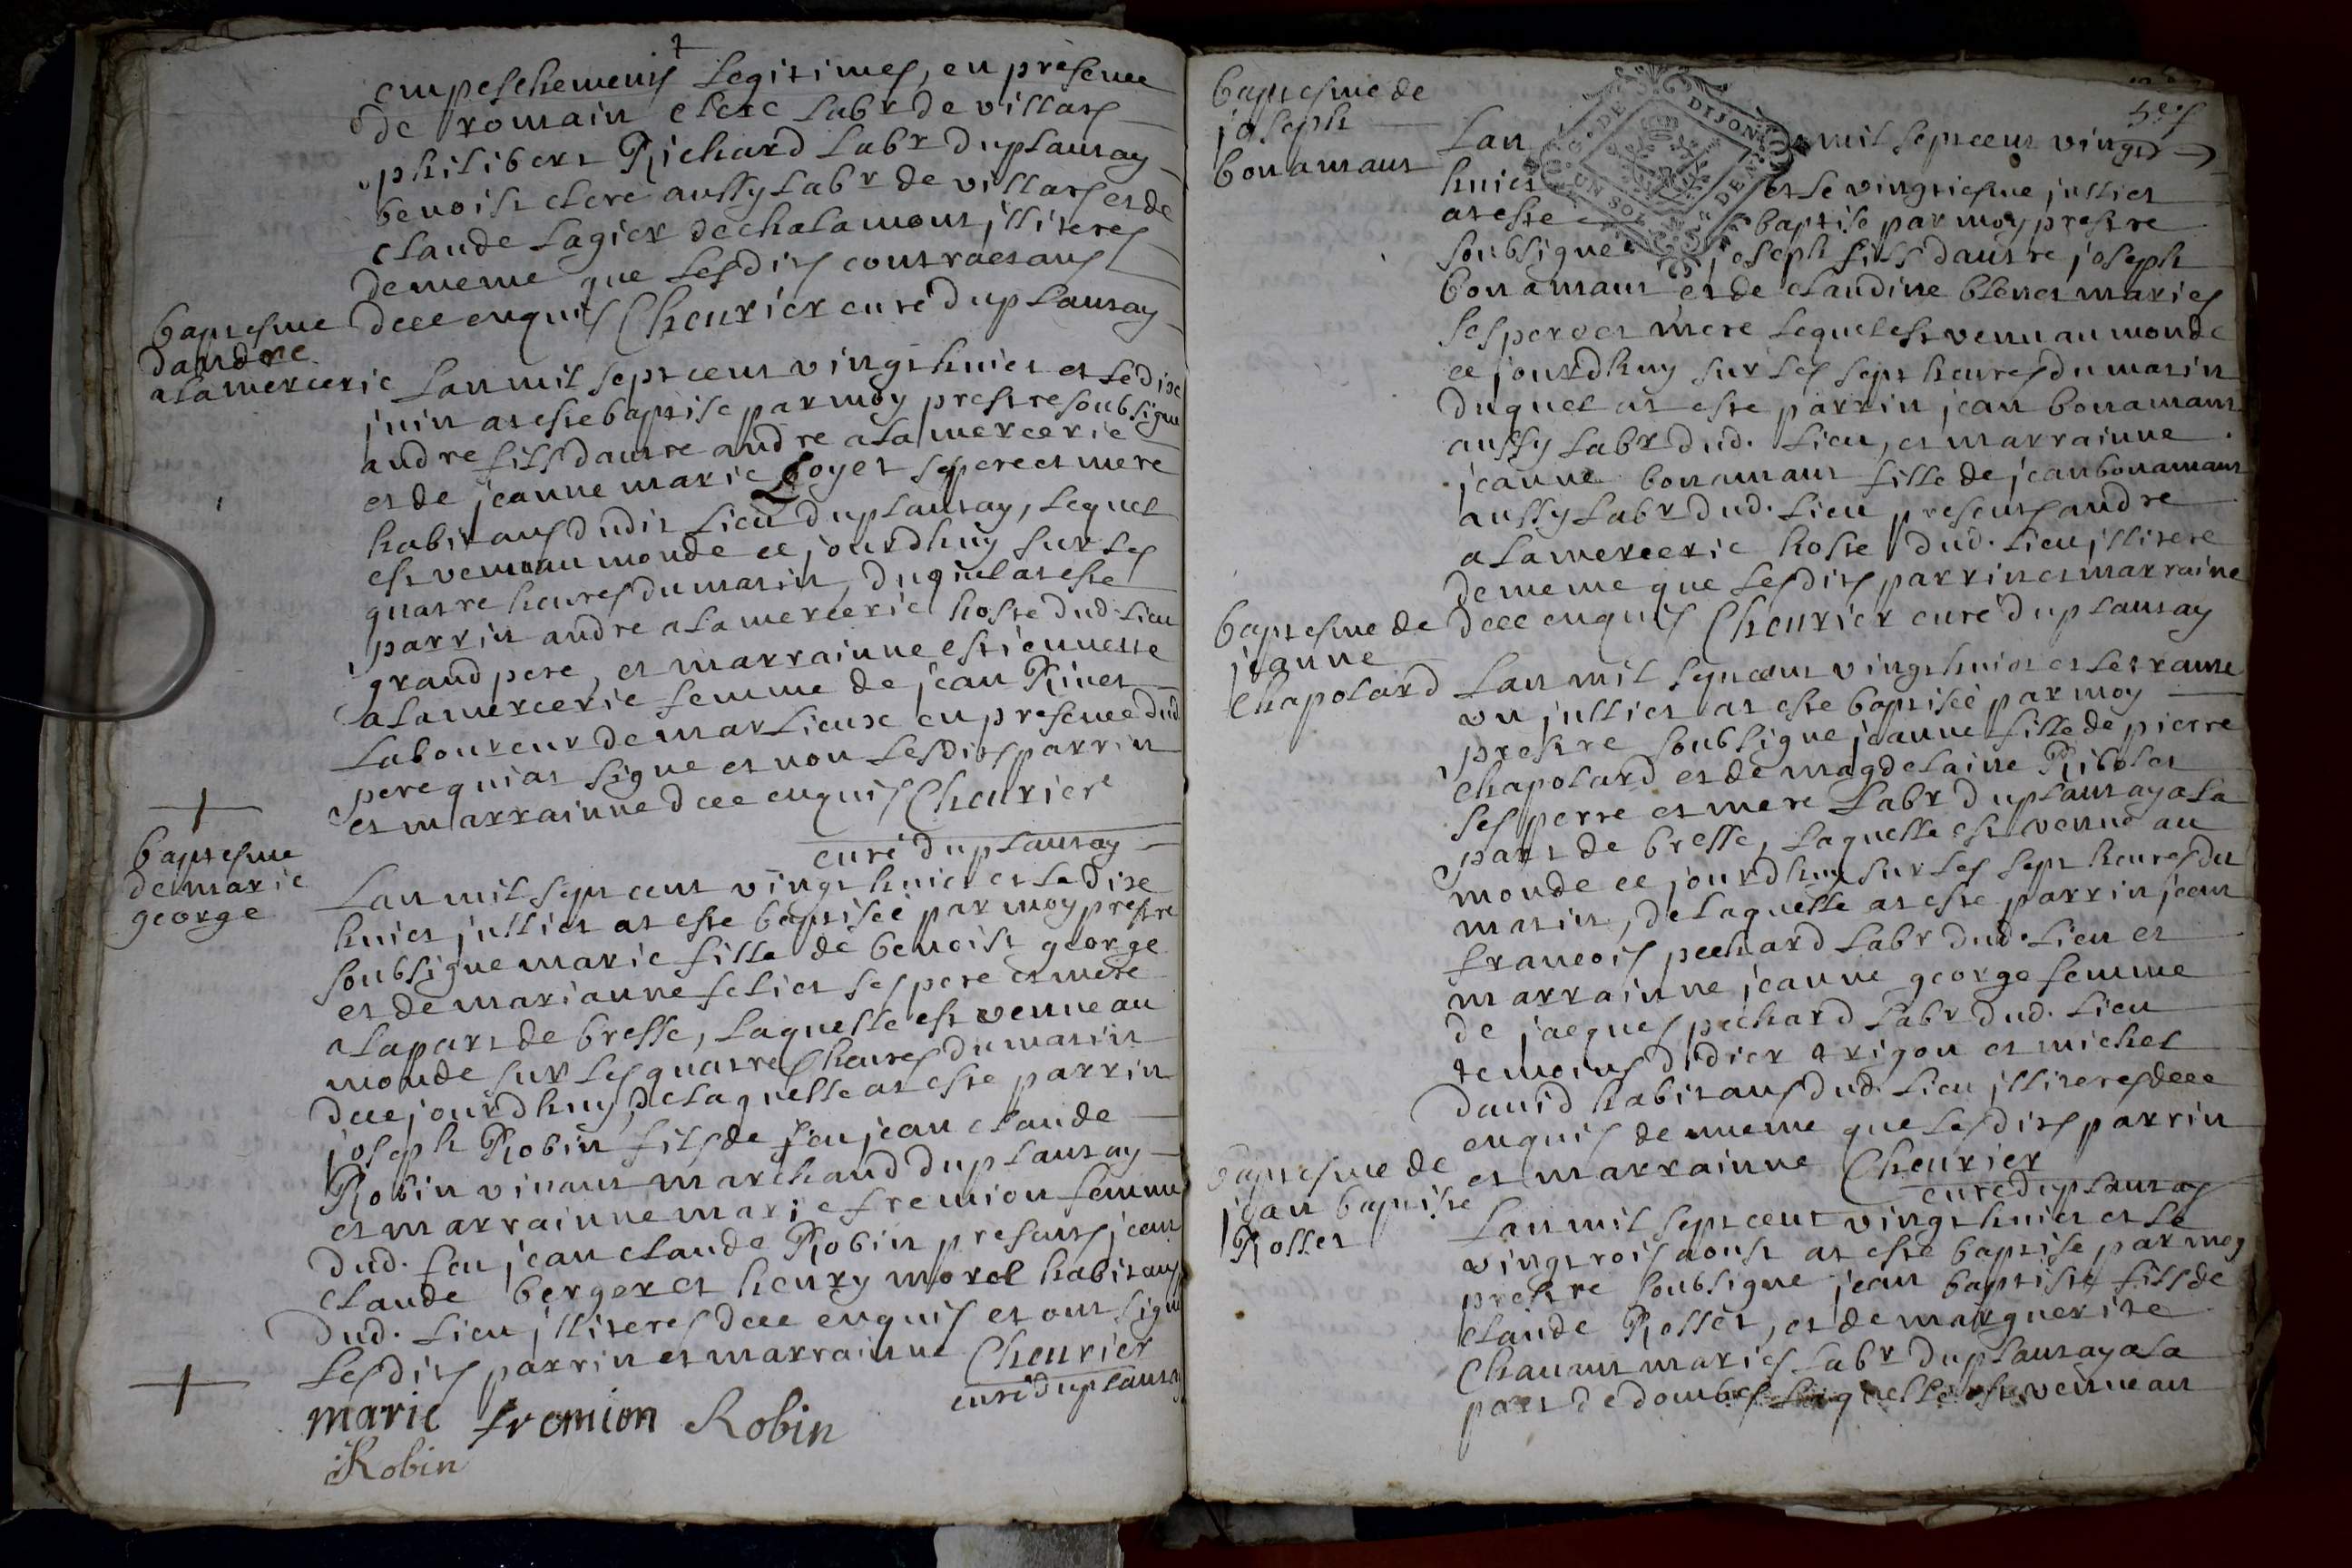 empeschements legitimes, en presence
de romain clerc labr de villars
philibert Richard labr duplantay
benoist clerc aussy labr de villars et de
claude lagier de chalamont, illiteres
de meme que lesdits contractans
dece enquis Cheurier curé duplantay
baptesme
dandre
alamercerie
Lan mil sept cent vingt huict et le dix
juin at este baptise par moy prestre soubsigne
andre fils dautre andre alamercerie
et de jeanne marie Loyet sepere et mere
habitans dudit lieu duplantay, lequel
est venu au monde ce jourdhuy sur les
quatre heures du matin, duquel at este
parrin andre alamercerie hoste dud. lieu
grand pere, et marrainne estiennette
alamercerie femme de jean Rivet
laboureur de marlieux en presence dud
pere qui at signe et non lesdits parrin
et marrainne dece enquis Cheurier
curé duplantay
baptesme
de marie
george
Lan mil sept cent vingt huict et le dix
huict juillet at este baptisée par moy prestre
soubsigne marie fille de benoist george
et de marianne felict ses pere et mere
alapart de bresse, laquelle est venue au
monde sur les quatres heures du matin
dece jourdhuy, delaquelle at este parrin
joseph Robin fils de feu jean claude
Robin vivant marchand duplantay
et marrainne marie fremion femme
dud. feu jean claude Robin presents jean
claude berger et henry morel habitans
dud. lieu, illiteres dece enquis et ont signe
lesdits parrin et marrainne Cheurier
curé duplantay
marie fremion Robin
Robin
baptesme de
joseph
bonamant
G. DE DIJON
UN SOL
Lan mil sept cent vingt
huict et le vingtiesme juillet
at este baptise par moy prestre
soubsigne joseph fils dautre joseph
bonamant et de claudine blenet maries
ses pere et mere lequel est venu au monde
ce jourdhuy sur les sept heures du matin
duquel at este parrin jean bonamant
aussy labr dud. lieu, et marrainne
jeanne bonamant fille de jean bonamant
aussy labr dud. lieu presents andre
alamercerie hoste dud. lieu, illitere
de meme que lesdits parrin et marraine
dece enquis Cheurier curé duplantay
baptesme de
jeanne
Chapolard
Lan mil sept cent vingt huict et le trante
un juillet at este baptisée par moy
prestre soubsigne jeanne fille de pierre
chapolard et de magdelaine Ribolet
ses perre et mere labr duplantay ala
part de bresse, laquelle est venue au
monde ce jourdhuy sur les sept heures du
matin, delaquelle at este parrin jean
francois pechard labr dud. lieu et
marrainne jeanne george femme
de jacques pechard labr dud. lieu
temoins didier trigon et michel
david habitans dud. lieu, illiteres dece
enquis de meme que lesdits parrin
et marrainne Cheurier
curé duplantay
baptesme de
jean baptiste
Rollet
Lan mil sept cent vingt huict et le
vingt trois aoust at este baptise par moy
prestre soubsigne jean baptiste fils de
claude Rollet, et de marguerite
Chanant maries labr duplantay ala
part de dombes laquelle est venue au